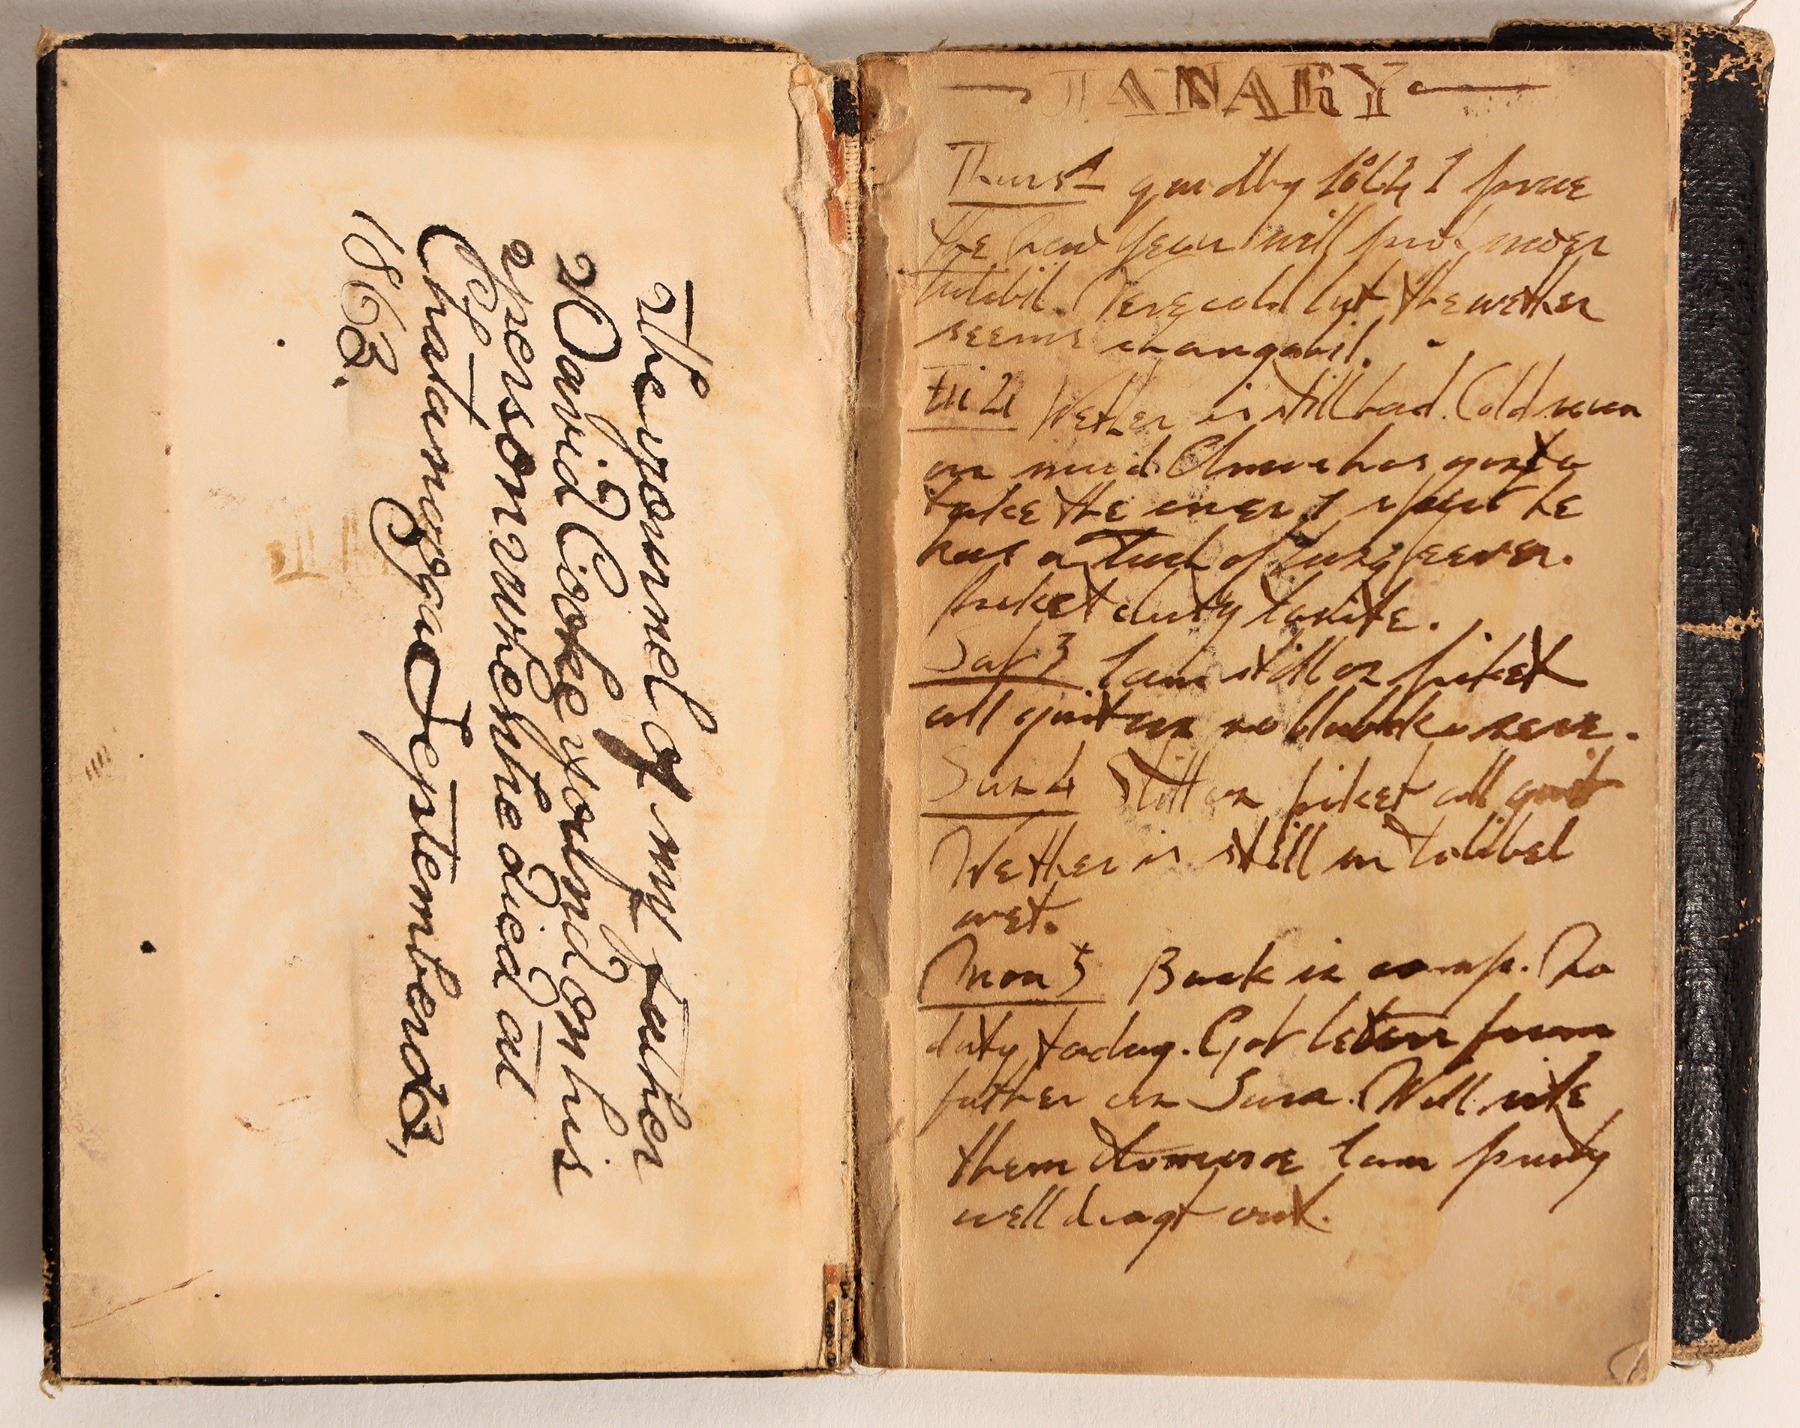 The jounnel of my father
David Cooke yound on his
person wheh he died at
Chatamagga Septembend 3,
1863.
JANARY
Thurs 1 goodby 1862 I
the new year will prove
tulibil. Vere cold but the wether
seems changabil.
Fri 2 Wether is still bad. Cold
an mud has gon to
take the he
has a Tuch of lung feever.
Picket duty tonite.
Sat 3 I am still on picket
all quit an no
Sun 4 Still on picket all quit
Wether is still in tolibel
wet.
Mon 5 Back in camp. No
duty today. Got leters from
father an Sara. Will rite
them tomoroe I am purty
well dragt out.